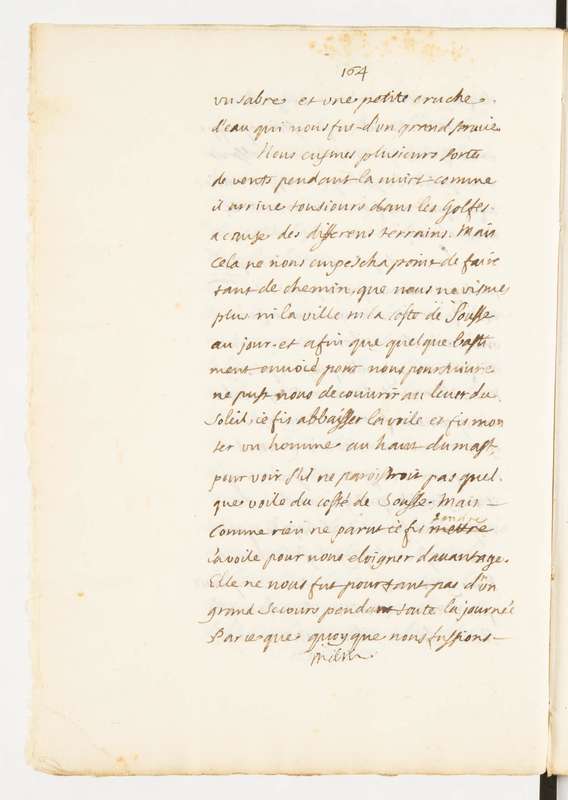 164
vn sabre et vne petite cruche
d'eau qui nous fut d'vn grand
Nous eusmes plusieurs sortes
de vents pendant la nuict comme
il arriue tousiours dans les Golfes
a cause des differens terrains. Mais
cela ne nous empescha point de faire
tant de chemin, que nous ne vismes
plus ni la ville ni la coste de Sousse
au jour. et afin que quelque basti
ment enuoié pour nous poursuiure
ne pust nous decouurir au leuer du
Soleil, ie fis abbaisser la voile et fis mon
ter vn homme au haut du mast,
pour voir s'il ne paroistroit pas quel
que voile du costé de Sousse. Mais
Comme rien ne parut ie fis mettre
la voile pour nous eloigner dauantage.
Elle ne nous fut pourtant pas d'vn
grand secours pendant toute la journée
Parce que quoyque nous fussions